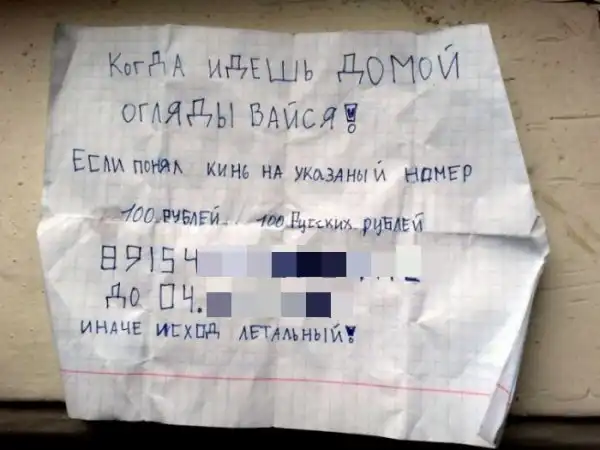 Когда идешь домой
оглядывайся!
Если понял кинь на указаный номер
100 рублей 100 Русских рублей
89154
до 04.
иначе исход летальный!